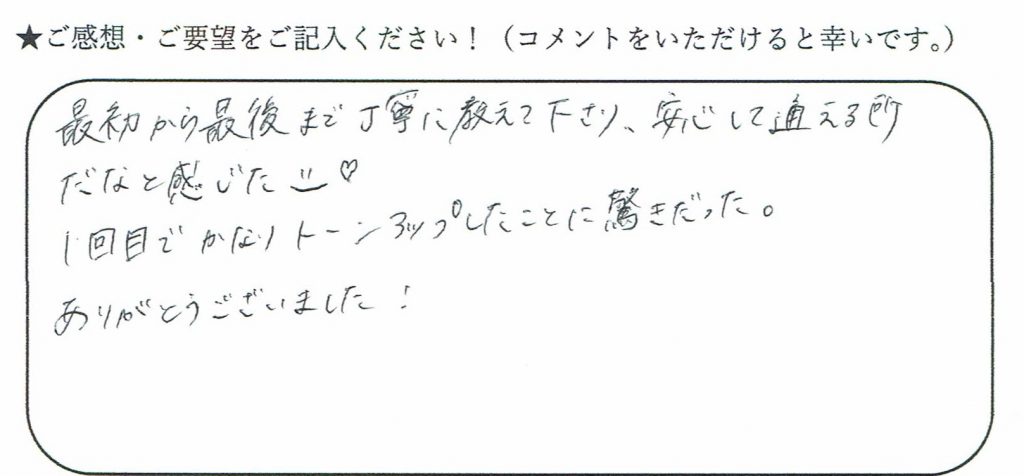 ★ご感想・ご要望をご記入ください！（コメントをいただけると幸いです。）
最初から最後まで丁寧に教えて下さり、安心して通える所
だなと感じた ♡
1回目でかなりトーンアップしたことに驚きだった。
ありがとうございました！